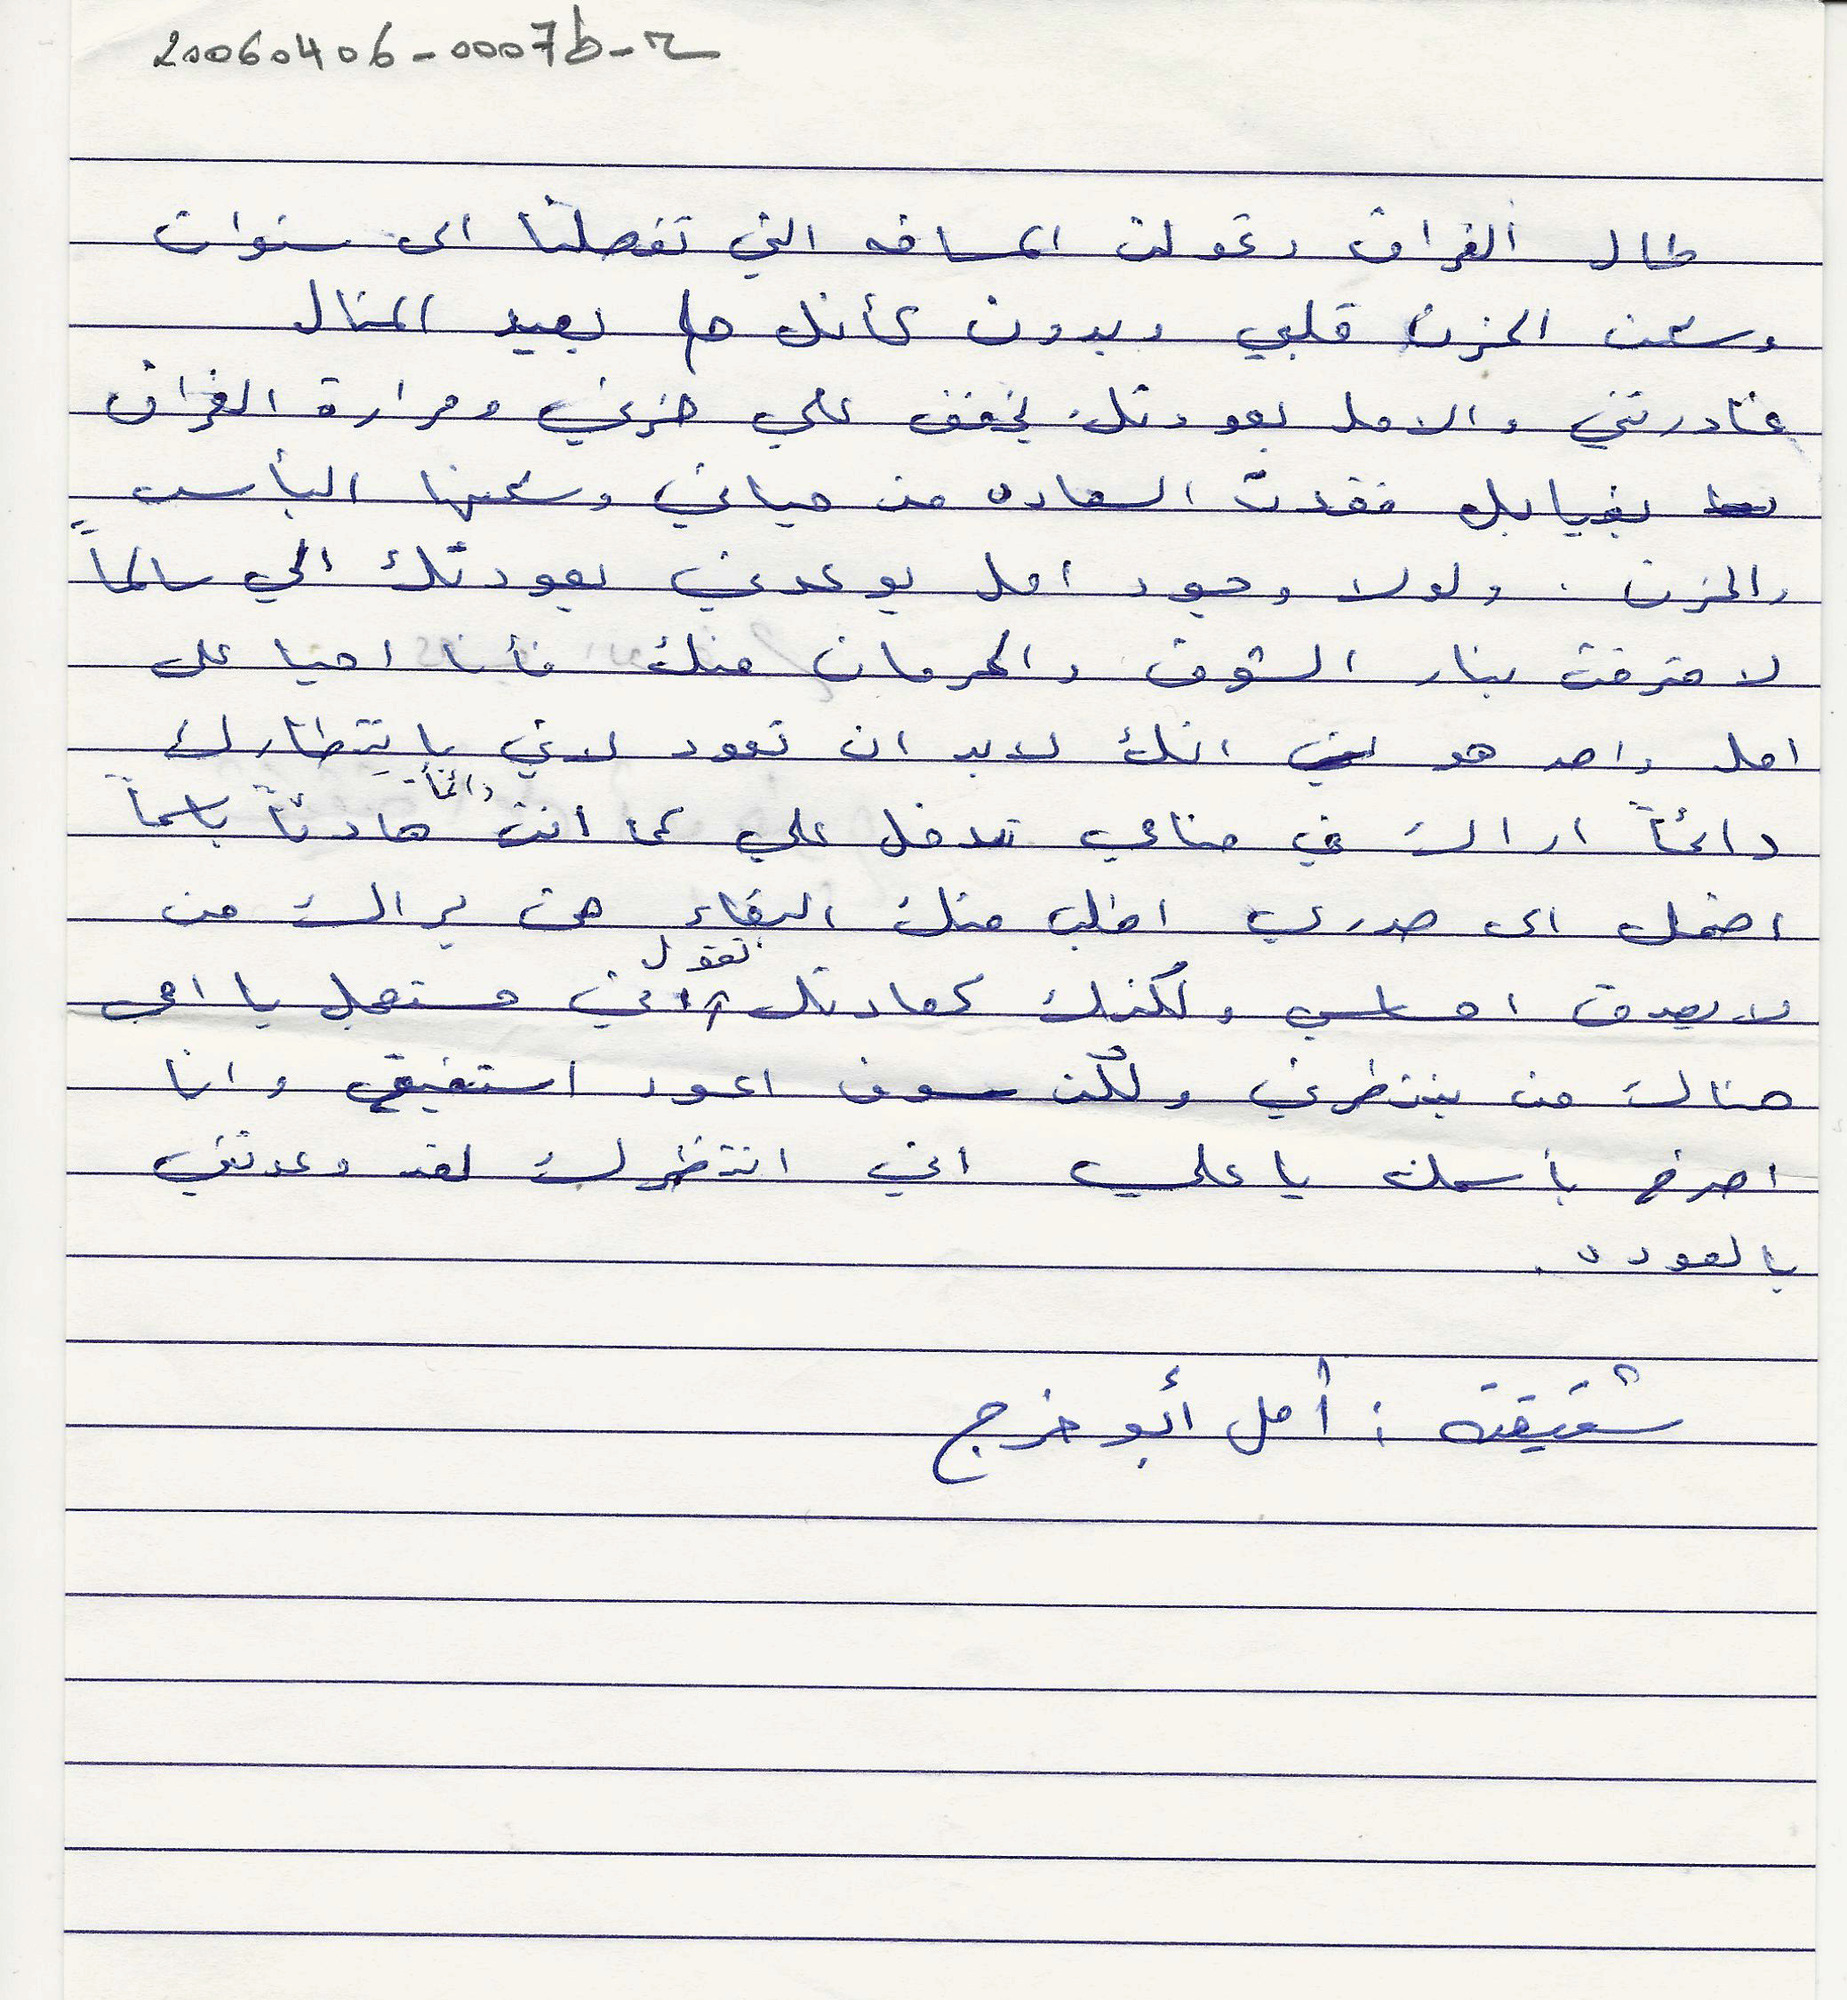 20060406-0007b-r
طال الفراق وتحولت المسافه التي تفصلنا الى سنوات
وسكن الحزن قلبي وبدون كأنك حلم بعيد المنال
غادرتني والامل بعودتك يخفف علي حزني ومرارة الفراق
بغيابك فقدت السعاده من حياتي وسكنها اليأس
والحزن. ولولا وجود امل يوعدني بعودتك الي سالماً
لاحترقت بنار الشوق والحرمان منك فأنا احيا على
امل واحد هو انك لابد ان تعود لاني بانتظارك
دائماً اراك في منامي تدخل علي كما انت دائماً هادئاً باسماً
اضمك الى صدري اطلب منك البقاء من يراك من
لا يصدق احساسي ولكنك كعادتك تقول اني مستعجل يا امي
هناك من ينتظرني ولكن سوف اعود استفيق وانا
اصرخ بأسمك يا علي اني انتظرك لقد وعدتني
بالعوده.
شقيقته : أمل أبو خرج